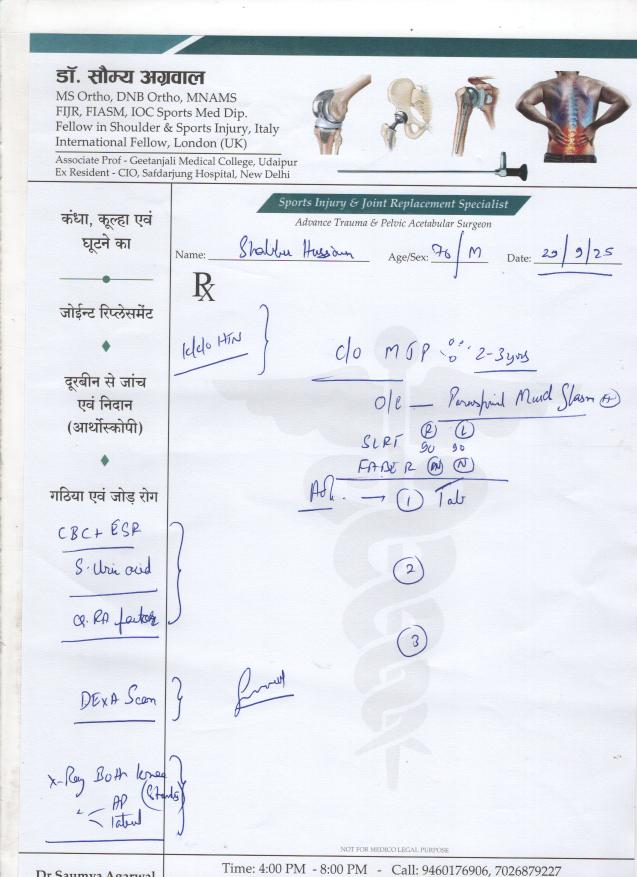 डॉ. सौम्य अग्रवाल
MS Ortho, DNB Ortho, MNAMS
FIJR, FIASM, IOC Sports Med Dip.
Fellow in Shoulder & Sports Injury, Italy
International Fellow, London (UK)
Associate Prof - Geetanjali Medical College, Udaipur
Ex Resident - CIO, Safdarjung Hospital, New Delhi
Sports Injury & Joint Replacement Specialist
Advance Trauma & Pelvic Acetabular Surgeon
Name: Shabbir Hussain Age/Sex: 70/M Date: 29/9/25
Rx
कंधा, कूल्हा एवं
घूटने का
जोईन्ट रिप्लेसमेंट
दूरबीन से जांच
एवं निदान
(आर्थोस्कोपी)
गठिया एवं जोड़ रोग
K/C/O HTN
C/O MJP 2-3 yrs
O/E — Paraspinal +
SLRT R L
90 90
FABER N N
Adv. → 1 Tab
2
3
CBC + ESR
S. Uric acid
RA factor
DEXA Scan
X-Ray Both knee
AP
NOT FOR MEDICO LEGAL PURPOSE
Dr Saumya Agarwal
Time: 4:00 PM - 8:00 PM - Call: 9460176906, 7026879227